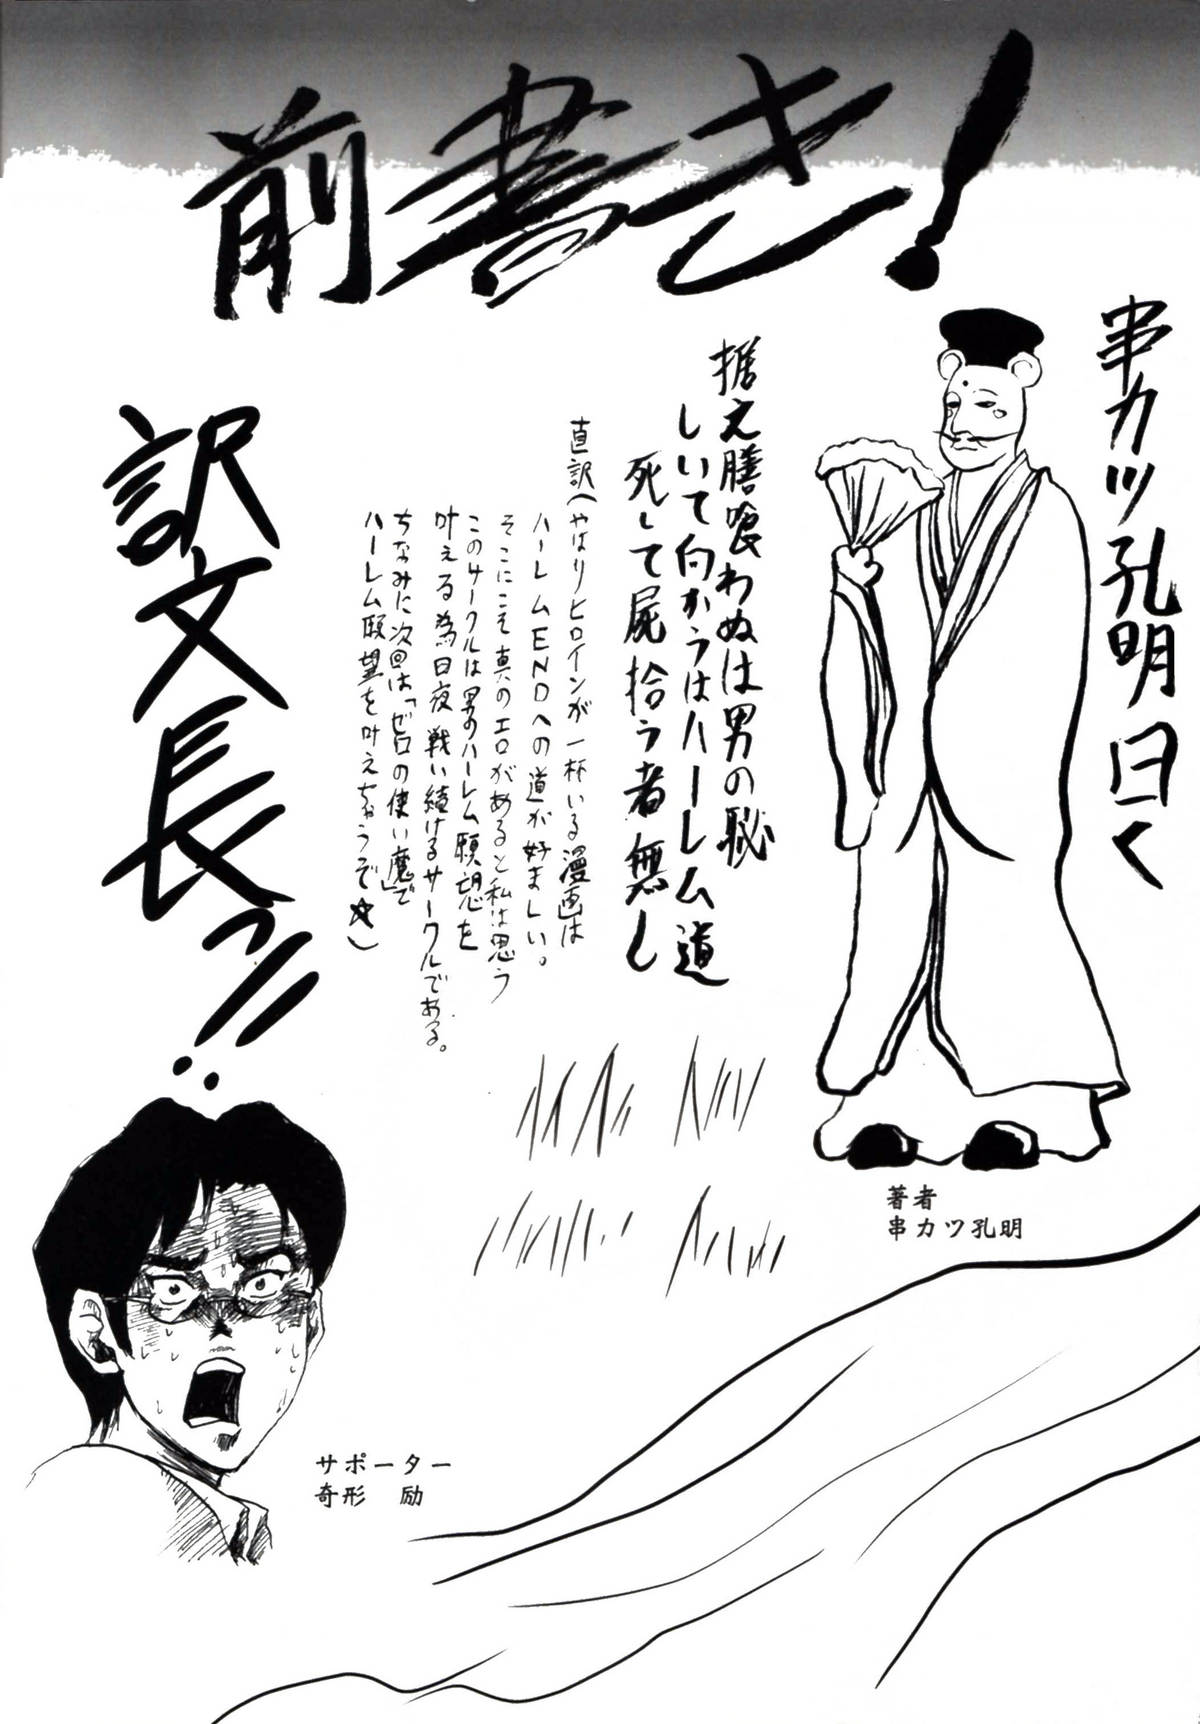 前書き!
串カツ孔明曰く
据え膳喰わぬは男の恥
しいて向かうはハーレム道
死して屍拾う者無し
直訳(やはりヒロインが一杯いる漫画は
ハーレムENDへの道が好ましい。
そこにこそ真のエロがあると私は思う
このサークルは男のハーレム願望を
叶える為日夜戦い続けるサークルである。
ちなみに次回は「ゼロの使い魔」で
ハーレム願望を叶えちゃうぞ☆)
訳文長っ!!
著者
串カツ孔明
サポーター
奇形 励